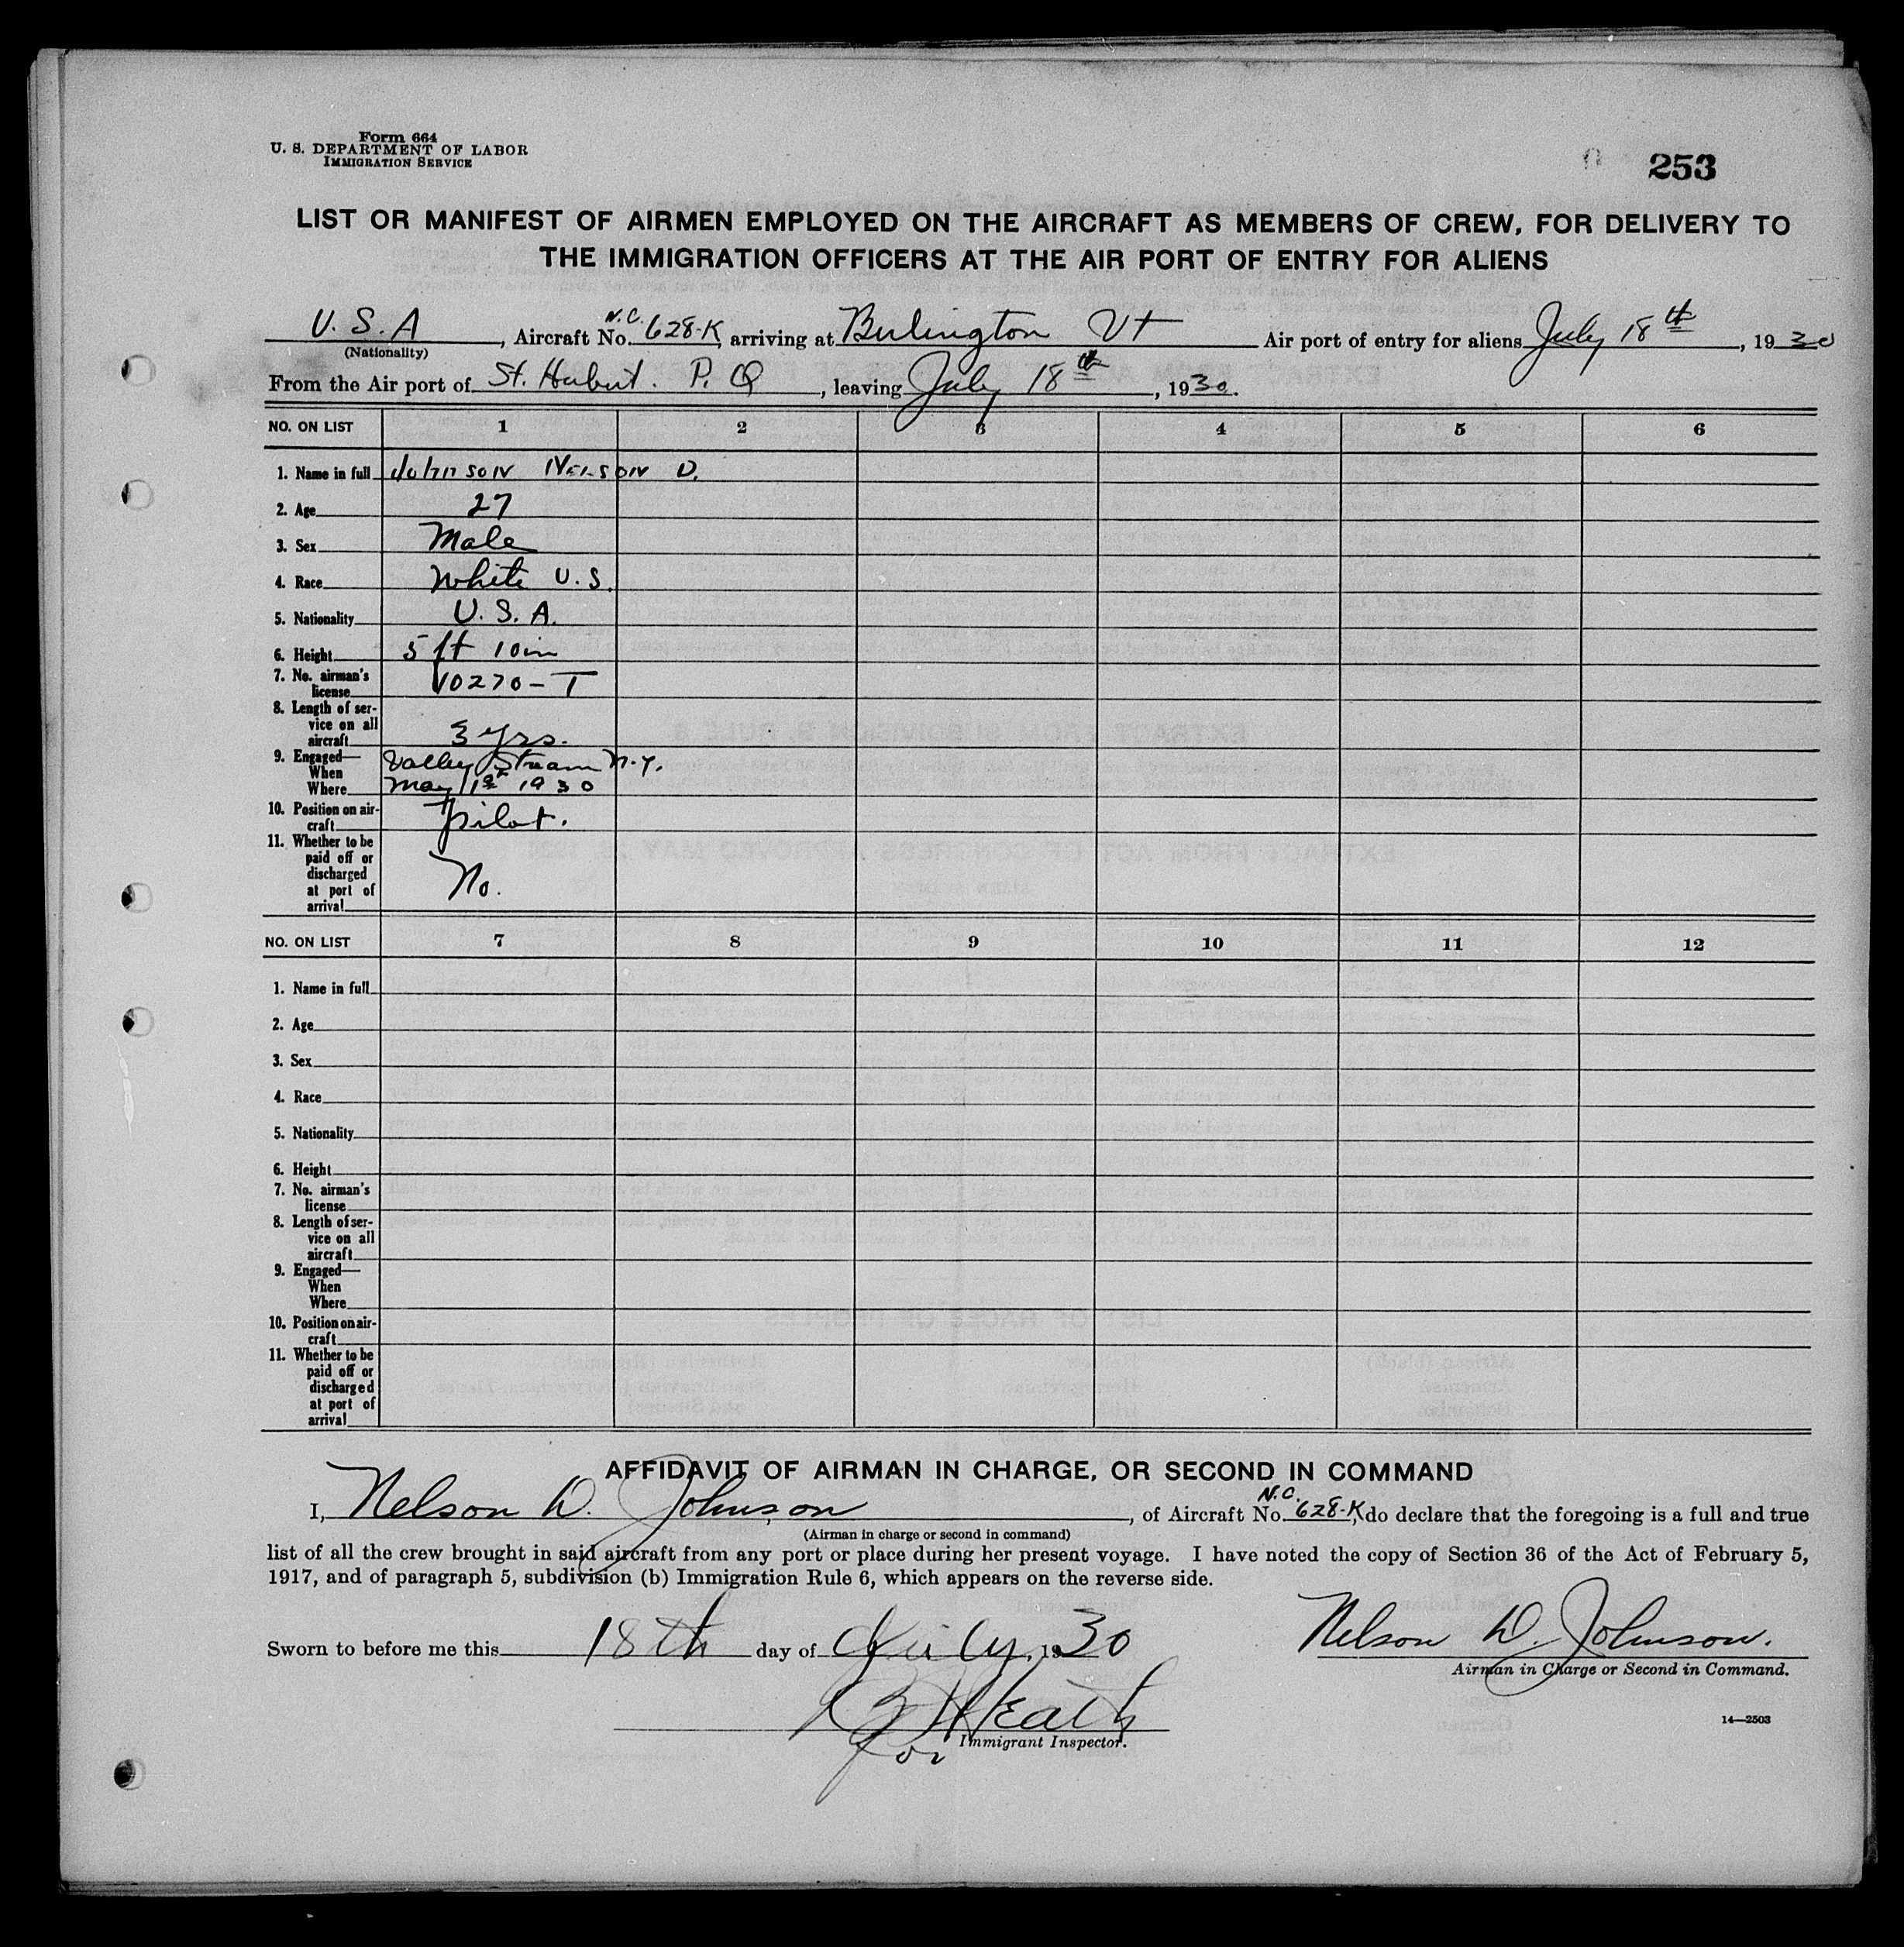 Form 664
U. S. DEPARTMENT OF LABOR
IMMIGRATION SERVICE
253
LIST OR MANIFEST OF AIRMEN EMPLOYED ON THE AIRCRAFT AS MEMBERS OF CREW, FOR DELIVERY TO
THE IMMIGRATION OFFICERS AT THE AIR PORT OF ENTRY FOR ALIENS
U. S. A, Aircraft No. N.C. 628-K, arriving at Burlington Vt Air port of entry for aliens July 18th, 1930
(Nationality)
From the Air port of St. Hubert. P. Q, leaving July 18th, 1930.
NO. ON LIST 1 2 3 4 5 6
1. Name in full Johnson Nelson D.
2. Age 27
3. Sex Male
4. Race White U.S.
5. Nationality U.S.A.
6. Height 5 ft 10 in
7. No. airman's
license 10270-T
8. Length of ser-
vice on all
aircraft 3 yrs.
9. Engaged— Valley Stream N.Y.
When
Where May 1st 1930
10. Position on air-
craft pilot.
11. Whether to be
paid off or
discharged No.
at port of
arrival
NO. ON LIST 7 8 9 10 11 12
1. Name in full
2. Age
3. Sex
4. Race
5. Nationality
6. Height
7. No. airman's
license
8. Length of ser-
vice on all
aircraft
9. Engaged—
When
Where
10. Position on air-
craft
11. Whether to be
paid off or
discharged
at port of
arrival
AFFIDAVIT OF AIRMAN IN CHARGE, OR SECOND IN COMMAND
I, Nelson D. Johnson, of Aircraft No. N.C. 628-K, do declare that the foregoing is a full and true
(Airman in charge or second in command)
list of all the crew brought in said aircraft from any port or place during her present voyage. I have noted the copy of Section 36 of the Act of February 5,
1917, and of paragraph 5, subdivision (b) Immigration Rule 6, which appears on the reverse side.
Sworn to before me this 18th day of July, 1930
Nelson D. Johnson.
Airman in Charge or Second in Command.
Heath
for Immigrant Inspector.
14—2503